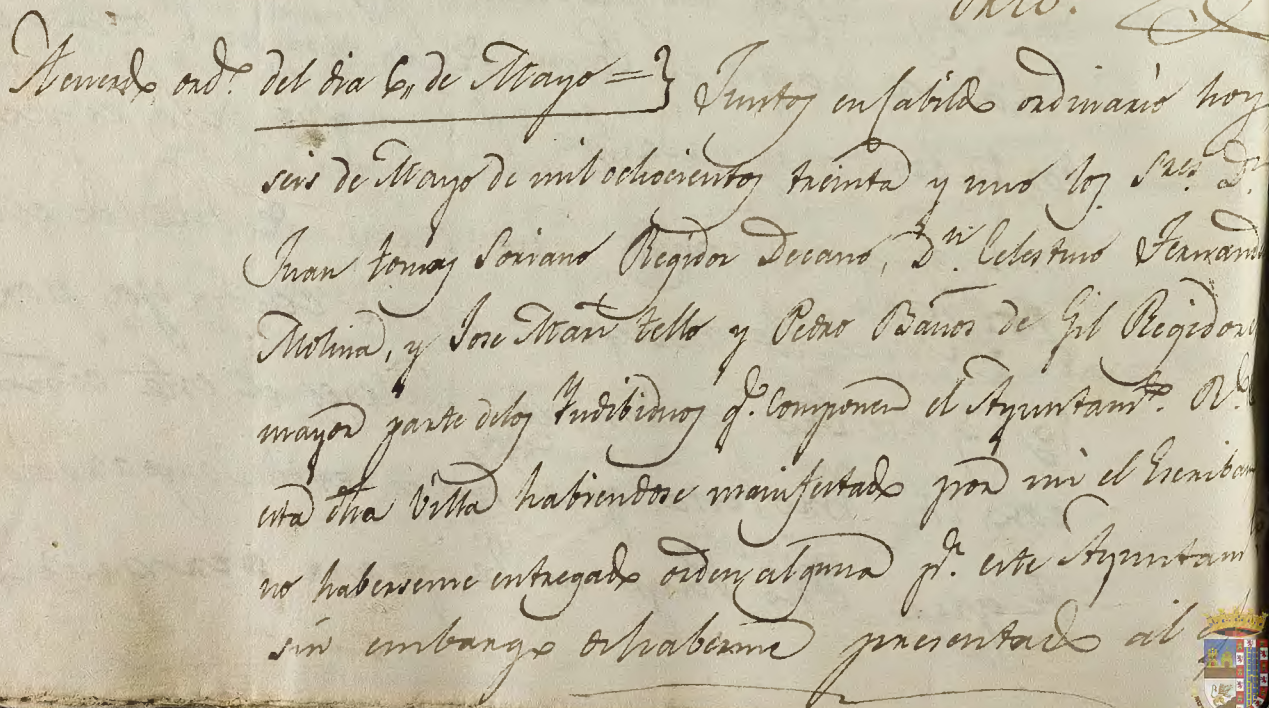 Acuerdo ord.º del dia 6,, de Mayo =} Juntos en Cabildo ordinario hoy
seis de Mayo de mil ochocientos treinta y uno los Sres. D.n
Juan tomas Soriano Regidor Decano, D.n Celestino Fernand
Molina, y Jose Man tello y Pedro Baños de Gil Regidore
mayor parte delos Yndibiduos q.e componen el Ayuntam.to
esta dha Villa habiendose manifestado por mi el Escriban
no haberseme entregado orden alguna p.a este Ayuntam
sin embargo de haberme presentado al